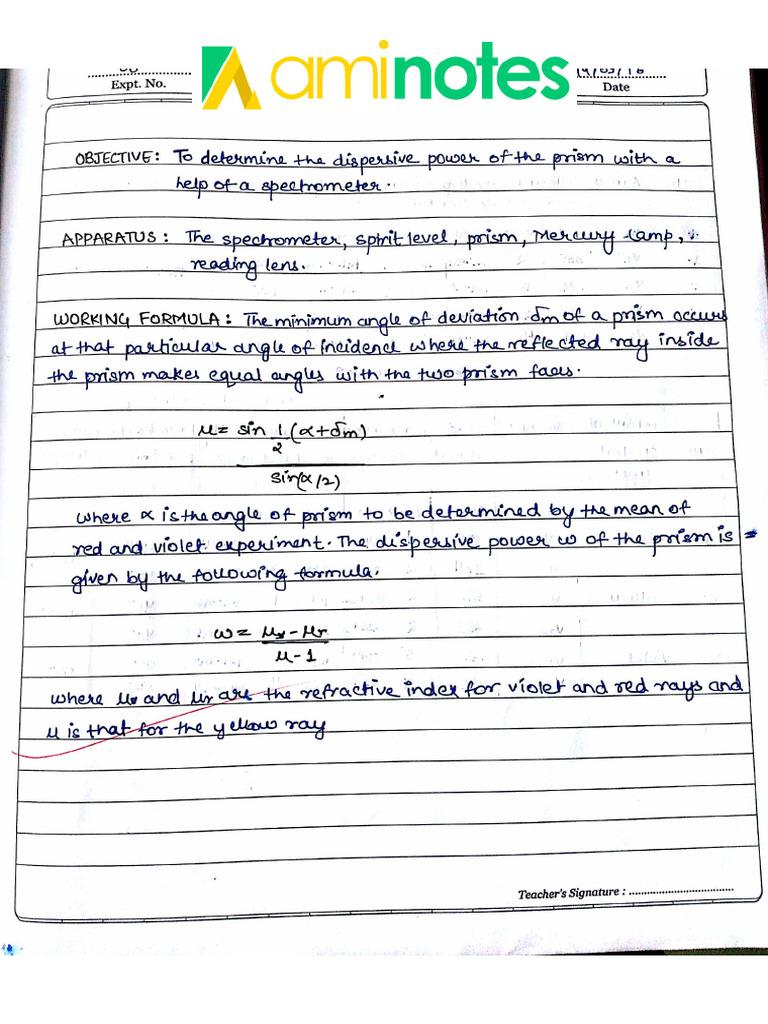 aminotes
Expt. No.
Date
OBJECTIVE: To determine the dispersive power of the prism with a
help of a spectrometer.
APPARATUS: The spectrometer, spirit level, prism, Mercury Lamp,
reading lens.
WORKING FORMULA: The minimum angle of deviation δm of a prism occurs
at that particular angle of incidence where the reflected ray inside
the prism makes equal angles with the two prism faces.
μ = sin 1/2 (α+δm)
sin(α/2)
where α is the angle of prism to be determined by the mean of
red and violet experiment. The dispersive power w of the prism is
given by the following formula.
ω = μv - μr
μ - 1
where μv and μr are the refractive index for violet and red rays and
μ is that for the yellow ray
Teacher's Signature : ....................................